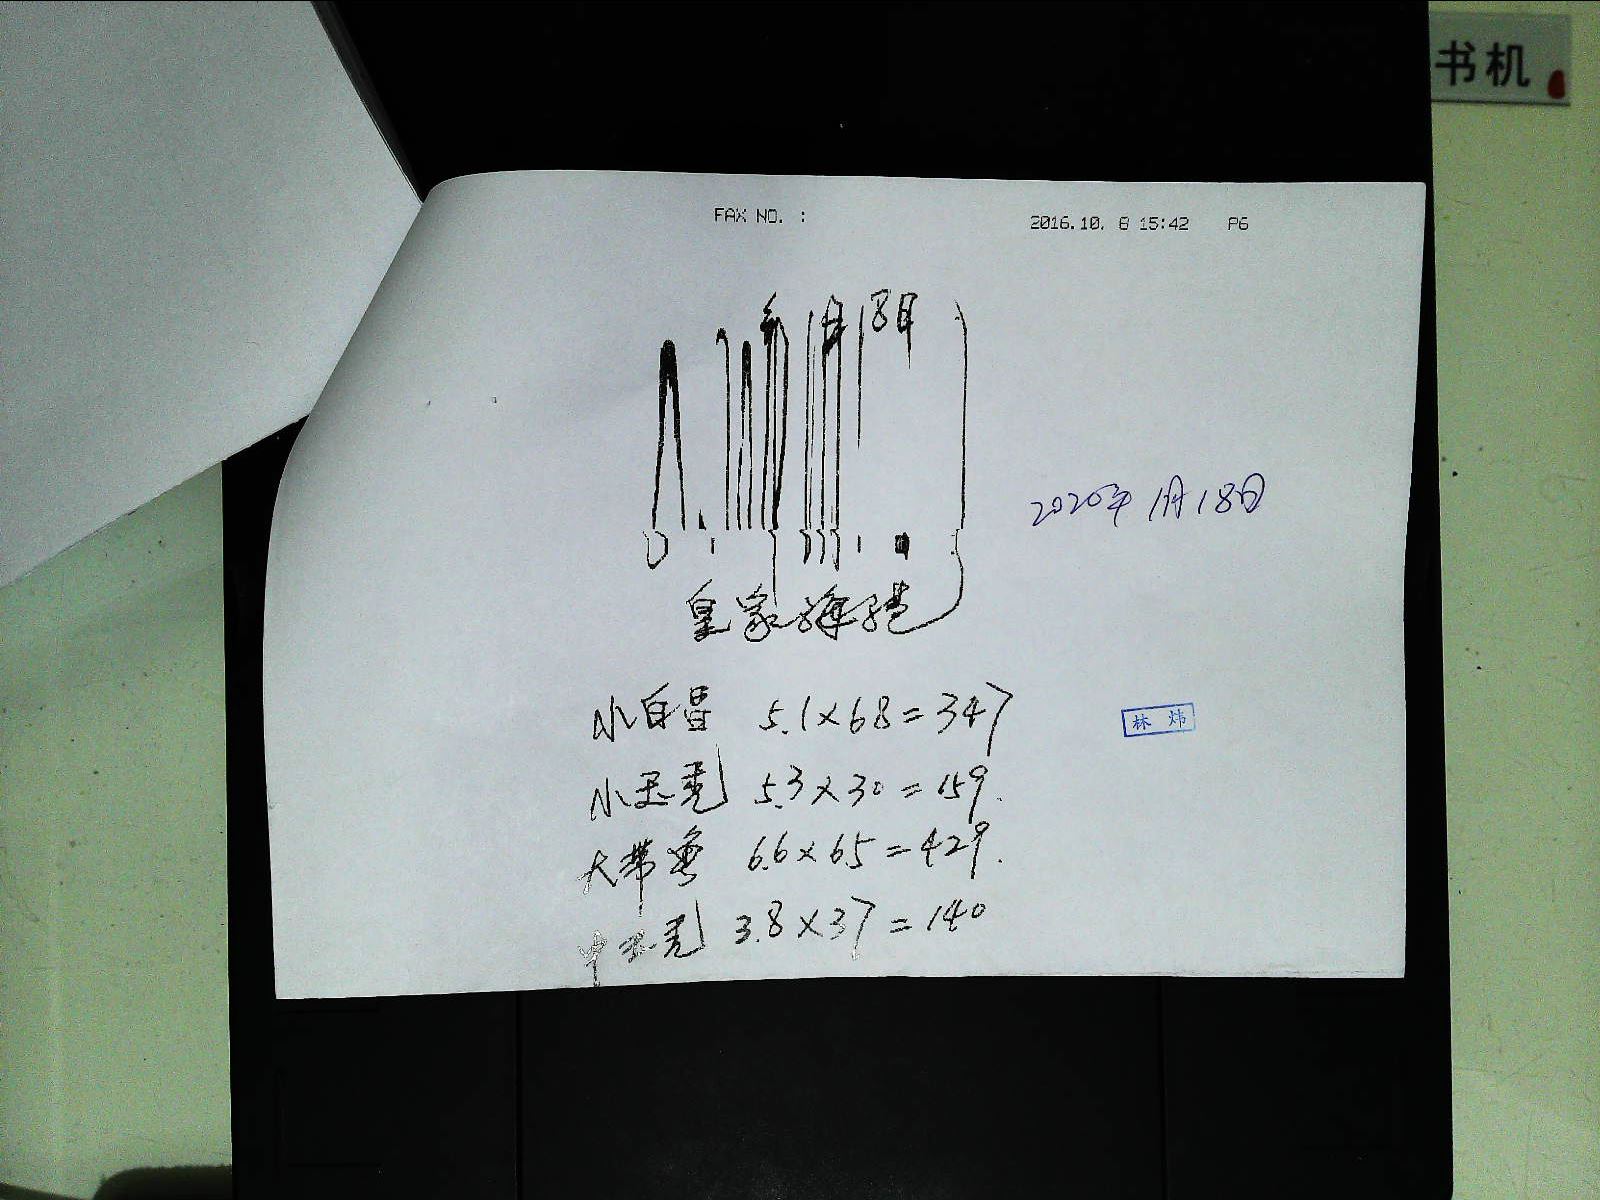 书机
FAX NO. :
2016.10. 8 15:42 P6
年 月 18日
2020年1月18日
皇家海港
小白昌 5.1×68=347
小玉秃 5.3×30=159.
大带鱼 6.6×65=429.
中玉秃 3.8×37=140
林 炜